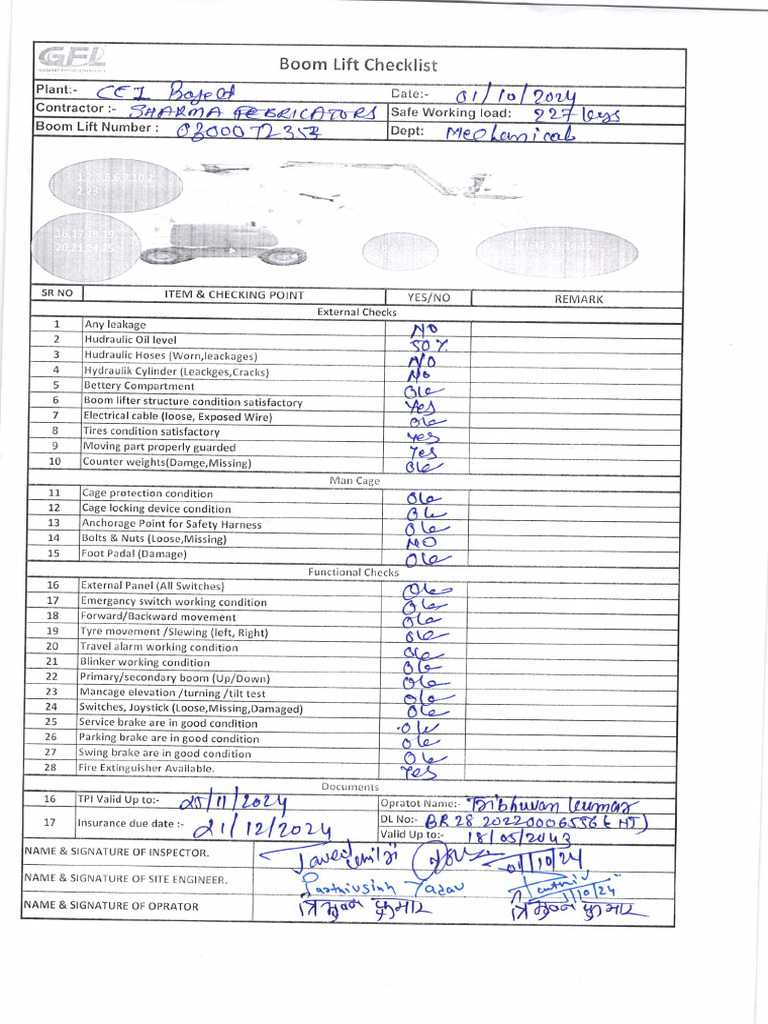 GFL
Boom Lift Checklist
Plant:- CEI Project
Date:- 01/10/2024
Contractor :- SHARMA FEBRICATORS
Safe Working load: 227 kgs
Boom Lift Number : 0300072353
Dept: Mechanical
SR NO ITEM & CHECKING POINT YES/NO REMARK
External Checks
1 Any leakage NO
2 Hudraulic Oil level 50%
3 Hudraulic Hoses (Worn,leackages) NO
4 Hydraulik Cylinder (Leackges,Cracks) NO
5 Bettery Compartment Ok
6 Boom lifter structure condition satisfactory Yes
7 Electrical cable (loose, Exposed Wire) Ok
8 Tires condition satisfactory Yes
9 Moving part properly guarded Yes
10 Counter weights(Damge,Missing) Ok
Man Cage
11 Cage protection condition Ok
12 Cage locking device condition Ok
13 Anchorage Point for Safety Harness Ok
14 Bolts & Nuts (Loose,Missing) NO
15 Foot Padal (Damage) Ok
Functional Checks
16 External Panel (All Switches) Ok
17 Emergancy switch working condition Ok
18 Forward/Backward movement Ok
19 Tyre movement /Slewing (left, Right) Ok
20 Travel alarm working condition Ok
21 Blinker working condition Ok
22 Primary/secondary boom (Up/Down) Ok
23 Mancage elevation /turning /tilt test Ok
24 Switches, Joystick (Loose,Missing,Damaged) Ok
25 Service brake are in good condition Ok
26 Parking brake are in good condition Ok
27 Swing brake are in good condition Ok
28 Fire Extinguisher Available. Yes
Documents
16 TPI Valid Up to:- 25/11/2024
Opratot Name:- Tribhuvan kumar
17 Insurance due date :- 21/12/2024
DL No:- BR28 20220006556 (NT)
Valid Up to:- 18/05/2043
NAME & SIGNATURE OF INSPECTOR. 01/10/24
NAME & SIGNATURE OF SITE ENGINEER. Parthivsinh Yadav 1/10/24
NAME & SIGNATURE OF OPRATOR त्रिभुवन कुमार त्रिभुवन कुमार